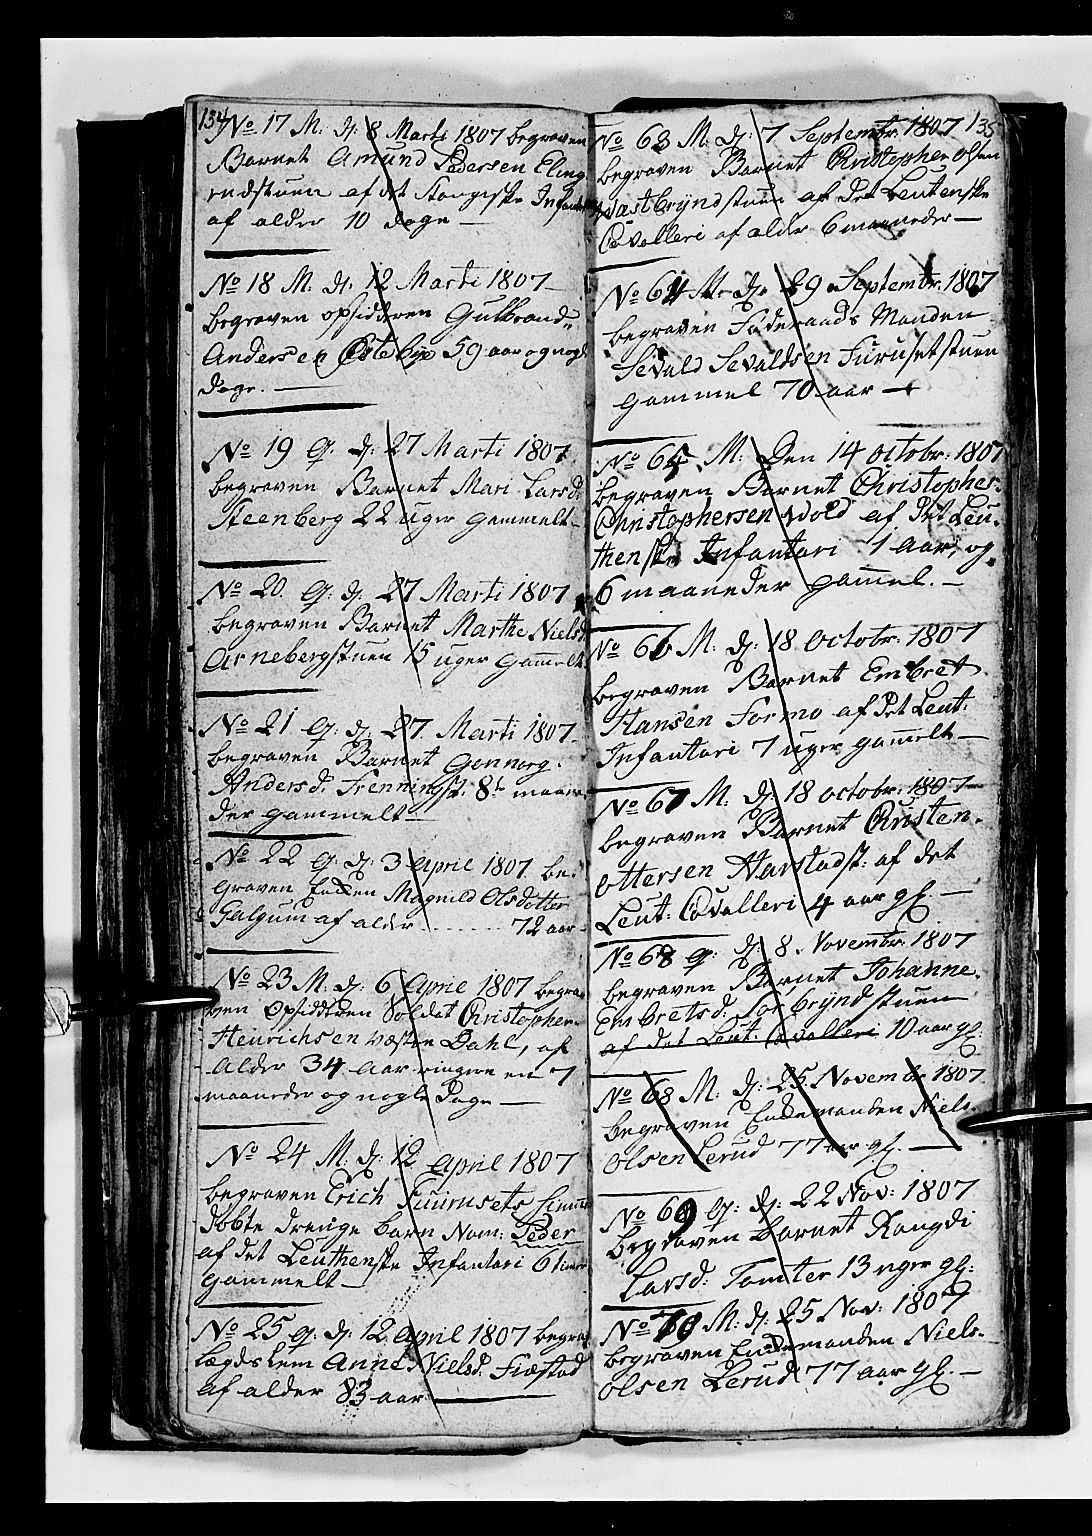 134
No 17 M: d: 8 Marti 1807 begraven
Barnet Amund Pedersen Eling
rudstuen af det Stangiske Infanteri
af alder 10 dage —
No 18 M. d: 12 Marti 1807 —
begraven opsidderen Gulbrand
Andersen Østebye 59 aar og nogle
dage. —
No 19 Q. d: 27 Marti 1807
begraven Barnet Mari Larsd:
Steenberg 22 uger gammelt —
No 20. Q: d: 27 Marti 1807
begraven Barnet Marthe Nielsd
Arnebergstuen 15 uger gammelt
No 21 Q. d: 27. Marti 1807 —
begraven Barnet Gonnorg.
Andersd. Frenningst. 8te maane
der gammelt —
No 22 Q: d: 3 April 1807. be:
graven Enken Magnild Olsdotter
Galgum af alder ........ 72 aar —
No 23 M: d: 6 April 1807 begra
ven Opsidderen Soldat Christopher
Heinrichsen væstre Dahl, af
Alder 34 Aar ringere en 7
maaneder og nogle Dage —
No 24 M: d: 12 April 1807
begraven Erich Fuurusets hiemme
døbte drenge barn Nom: Peder
af det Leuthenske Infantari 6 timer
gammelt —
No 25 Q: d: 12 April 1807 begra
lægdslem Anne Nielsd. Fiæstad
af alder 83 aar —
135
No 63 M: d: 7 Septembr: 1807
begraven Barnet Christopher Olsen
Vastbryndstuen af det Leutenske
Cavalleri af alder 6 maaneder —
No 64 M: d: 29 Septembr: 1807
begraven Føderaads Manden
Sevald Sevaldsen Furusetstuen
gammel 70 aar —
No 65 M: Den 14 octobr: 1807
begraven Barnet Christopher
Christophersen Wold af det Leu:
thenske Infantari 1 Aar, og
6 maaneder gammel. —
No 66 M: d: 18 Octobr: 1807
begraven Barnet Embret
Hansen Formo af det Leut:
Infantari 7 uger gammelt —
No 67 M: d: 18 octobr: 1807 —
begraven Barnet Christen
Ottersen Harstadst: af det
Leut: Cavalleri 4 aar gl. —
No 68 Q: d: 8. Novembr: 1807
begraven Barnet Johanne
Embretsd. Sorbryndstuen
af det Leut. Cavalleri 10 aar gl:
No 68 M: d: 25 Novembr 1807
begraven Enkemanden Niels
Olsen Lerud 77 aar gl. —
No 69 Q: d: 22 Nov: 1807
begraven Barnet Rangdi
Larsd: Tomter 13 uger gl:
No 70 M: d: 25 Nov: 1807
begraven Enkemanden Niels
Olsen Lerud 77 aar gl. —